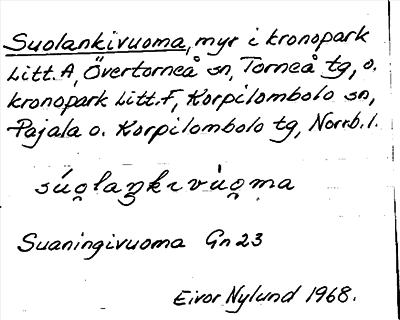 Suolankivuoma, myr i kronopark
Litt. A, Övertorneå sn, Torneå tg, o.
kronopark Litt. F, Korpilombolo sn,
Pajala o. Korpilombolo tg, Norrb. l.
súo̯laŋkivùo̯ma
Suaningivuoma Gn 23
Eivor Nylund 1968.